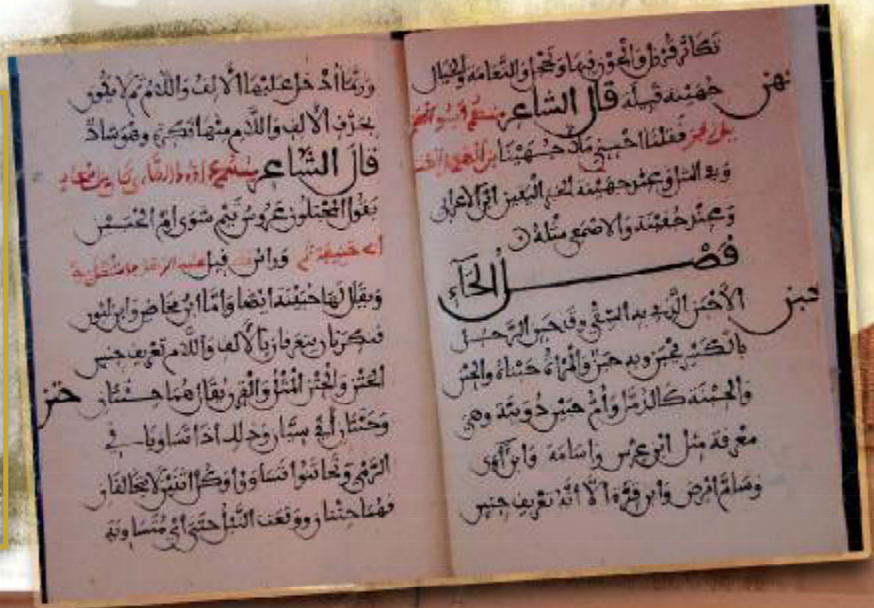 والنعامة والخيال
جهن
جهينة قبيلة قال الشاعر
فقلنا احسني ملأ جهينا
وفي المثل وعند جهينة الخبر اليقين ابن الاعرابي
وعند جفينة والاصمعي مثله
فصل الحاء
حبن
الأحبن الذي به السقي وقد حبن الرجل
بالكسر يحبن وبه حبن والمرأة حبناء والحبن
والحبنة كالدمل وأم حبين دويبة وهي
معرفة مثل ابن عرس واسامة وابن آوى
وسام ابرص وابن قترة الا انه تعريف جنس
وربما أدخل عليها الالف واللام ثم لا تكون
بحذف الالف واللام منها نكرة وهو شاذ
قال الشاعر
يقول المجتلون عروس تيم شوى ام الحبين
ورأس فيل
ويقال لها حبينة ايضا واما ابن مخاض وابن لبون
فنكرتان يتعرفان بالألف واللام تعريف جنس
حتن
الحتن والحتن المثل والقرن يقال هما حتنان
وحتنان أي سيان وذلك اذا تساويا في
الرمي وتحاتنوا تساووا وكل اثنين لا يتخالفان
فهما حتنان ووقعت النبل حتنى أي متساوية